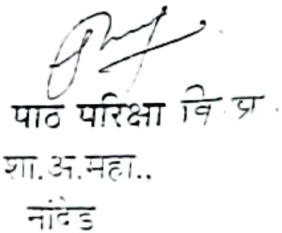 पाठ परिक्षा वि प्र.
शा.अ.महा..
नांदेड